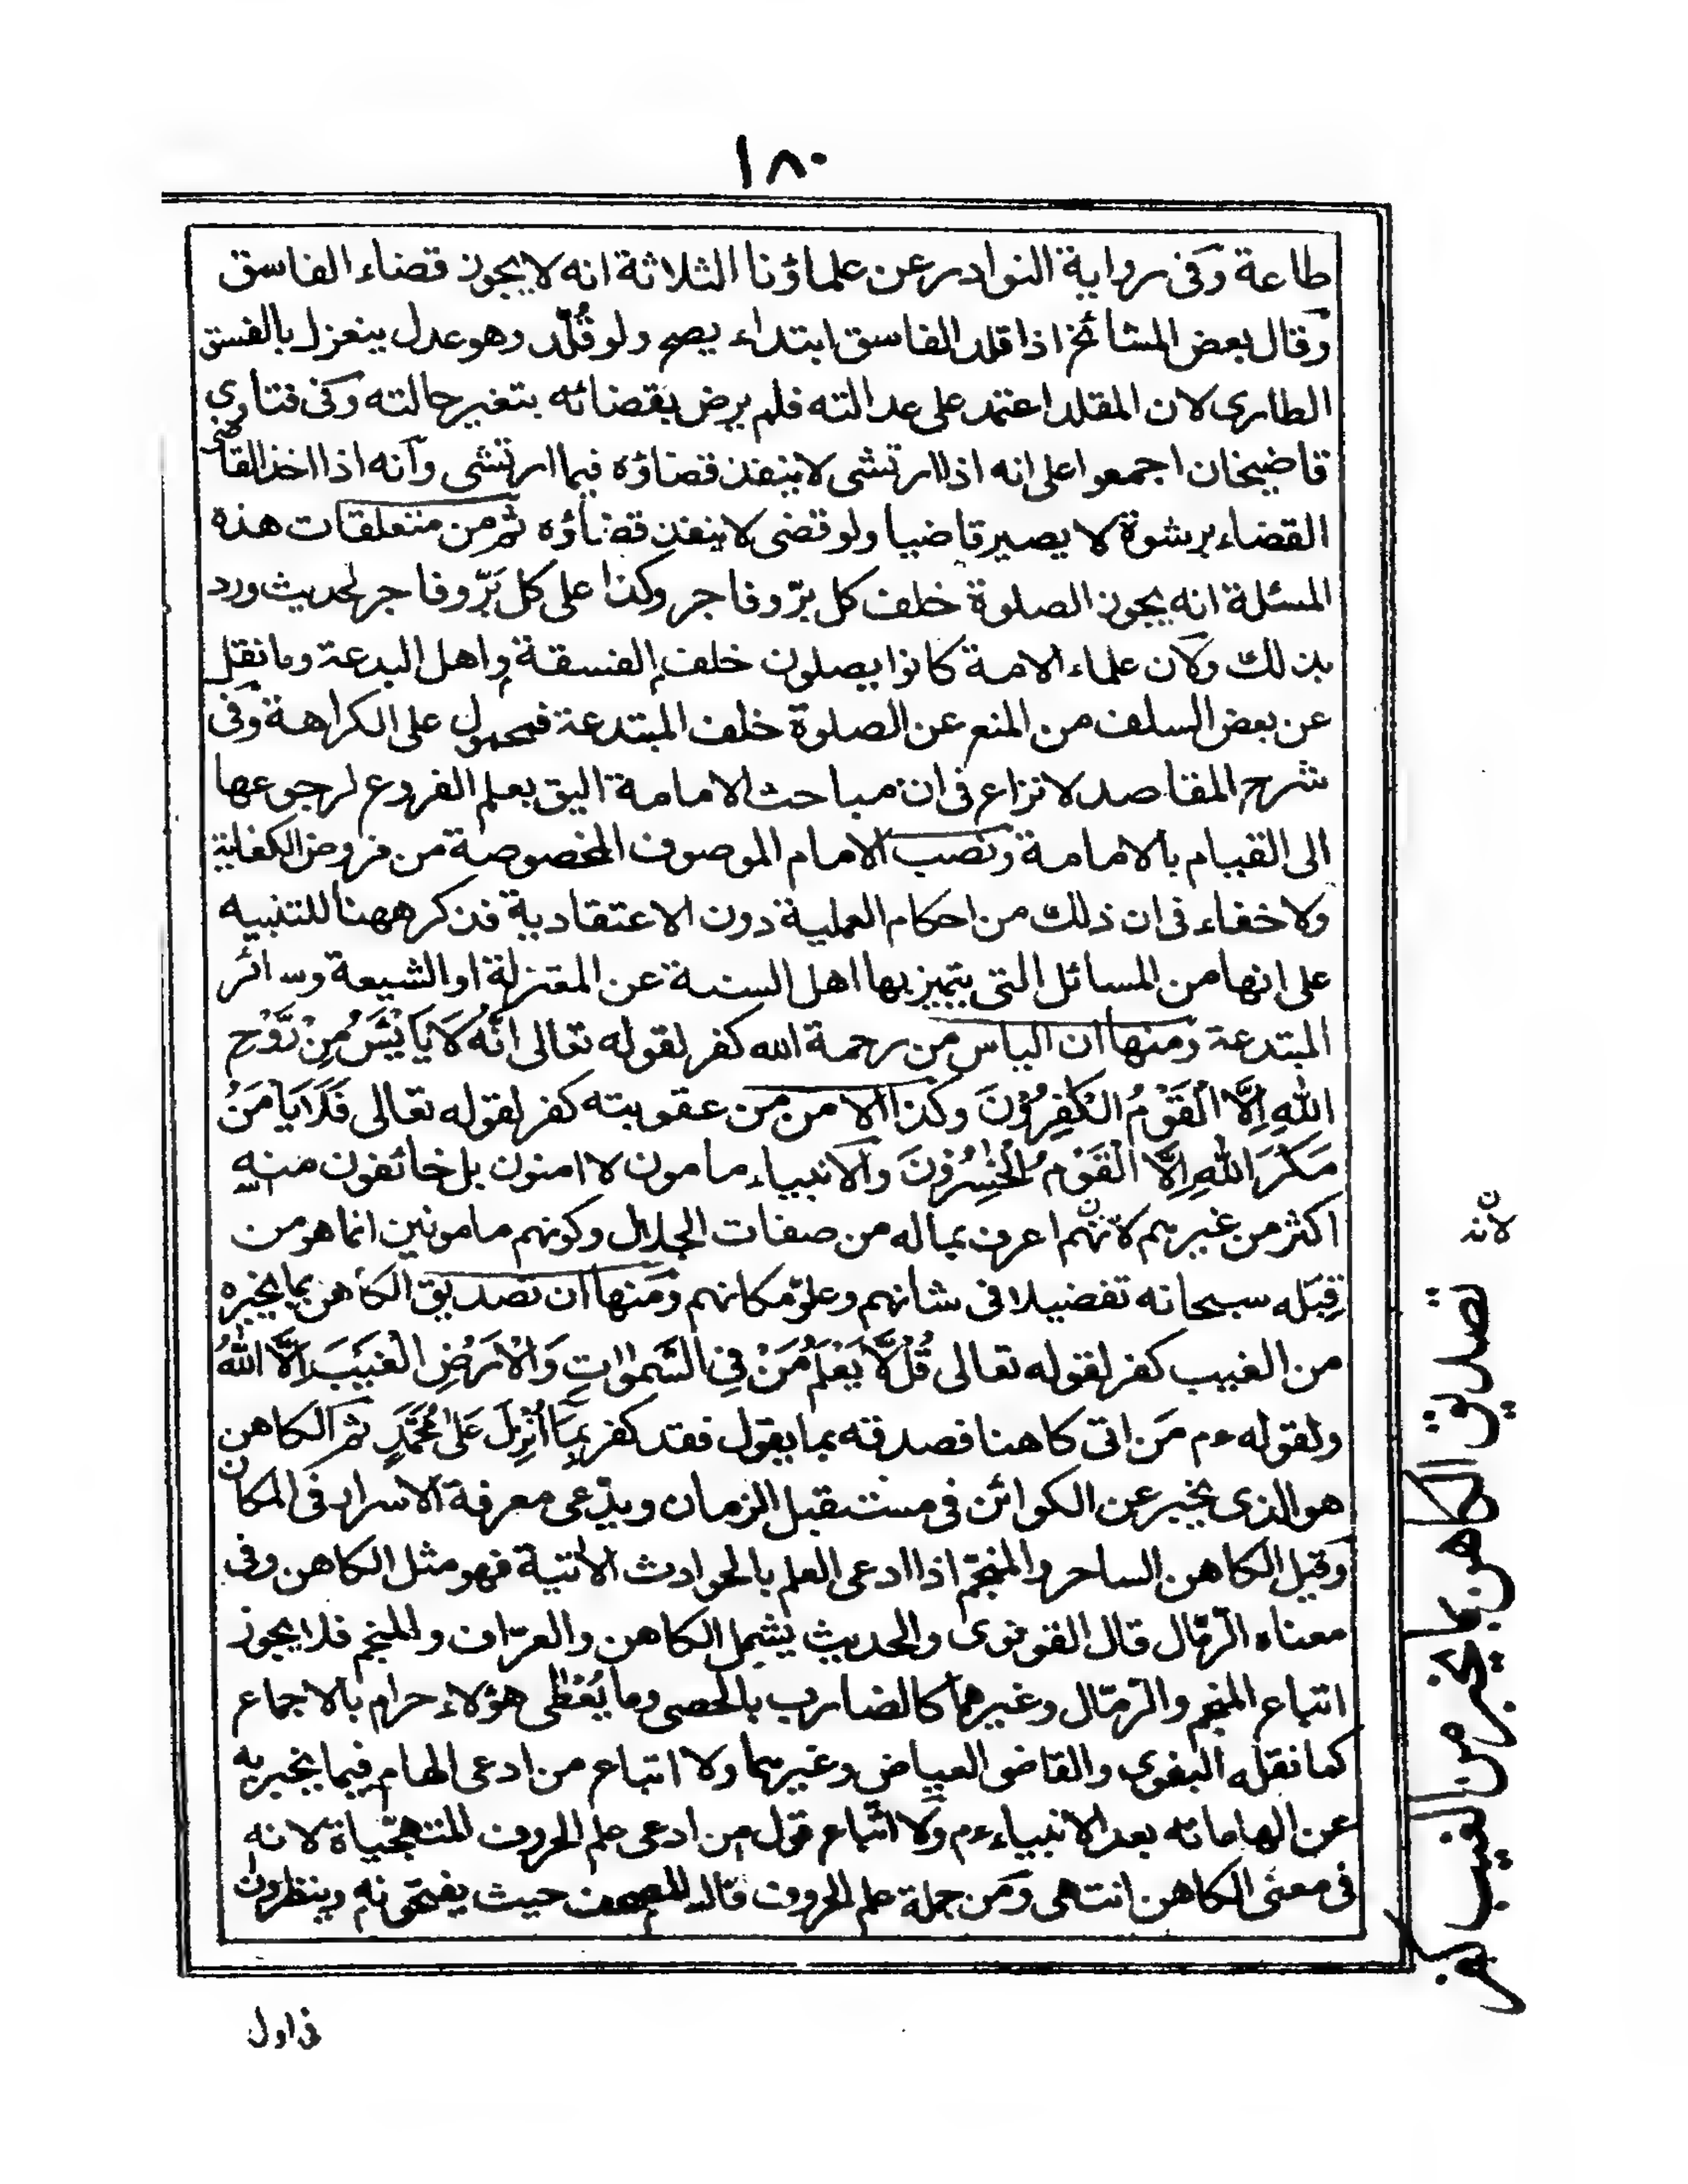 ١٨٠
طاعة وفى رواية النوادر عن علماؤنا الثلاثة انه لا يجوز قضاء الفاسق
وقال بعض المشائخ اذا قلد الفاسق ابتداء يصح ولو قُلّد وهو عدل ينعزل بالفسق
الطارى لان المقلد اعتمد على عدالته فلم يرض بقضائه بتغير حالته وفى فتاوى
قاضيخان اجمعوا على انه اذا ارتشى لا ينفذ قضاؤه فيما ارتشى وانه اذا اخذ القاضى
القضاء برشوة لا يصير قاضيا ولو قضى لا ينفذ قضاؤه ثم من متعلقات هذه
المسئلة انه يجوز الصلوة خلف كل برّ وفاجر وكذا على كل بَرّ وفاجر لحديث ورد
بذلك ولان علماء الامة كانوا يصلون خلف الفسقة واهل البدعة وما نقل
عن بعض السلف من المنع عن الصلوة خلف المبتدعة فمحمول على الكراهة وفى
شرح المقاصد لا نزاع فى ان مباحث الامامة اليق بعلم الفروع لرجوعها
الى القيام بالامامة ونصب الامام الموصوف المخصوصة من فروض الكفاية
ولا خفاء فى ان ذلك من احكام العملية دون الاعتقادية فذكر ههنا للتنبيه
على انها من المسائل التى يتميز بها اهل السنة عن المعتزلة او الشيعة وسائر
المبتدعة ومنها ان الياس من رحمة الله كفر لقوله تعالى اِنَّهُ لَا يَايْئَسُ مِنْ رَّوْحِ
اللهِ اِلَّا الْقَوْمُ الْكٰفِرُوْنَ وكذا الامن من عقوبته كفر لقوله تعالى فَلَا يَامَنُ
مَكْرَ اللهِ اِلَّا الْقَوْمُ الْخٰسِرُوْنَ والانبياء مامون لا امنون بل خائفون منه
اكثر من غيرهم لانهم اعرف بماله من صفات الجلال وكونهم مامونين انما هو من
قِبَله سبحانه تفضيلا فى شانهم وعلوّ مكانهم ومنها ان تصديق الكاهن بما يخبره
من الغيب كفر لقوله تعالى قُلْ لَّا يَعْلَمُ مَنْ فِى السَّمٰوٰاتِ وَالْاَرْضِ الْغَيْبَ اِلَّا اللهُ
ولقوله ءم مَن اتى كاهنا فصدقه بما يقول فقد كفر بِمَا اُنْزِلَ عَلٰى مُحَمَّدٍ ثم الكاهن
هو الذى يخبر عن الكوائن فى مستقبل الزمان ويدّعى معرفة الاسرار فى المكان
وقيل الكاهن الساحر والمنجّم اذا ادعى العلم بالحوادث الاتية فهو مثل الكاهن وفى
معناه الرمّال قال القونوى والحديث يشمل الكاهن والعرّاف والمنجم فلا يجوز
اتباع المنجم والرمّال وغيرهما كالضارب بالحصى وما يُعْطٰى هؤلاء حرام بالاجماع
كما نقله البغوى والقاضى العياض وغيرهما ولا اتباع من ادعى الهام فيما يخبر به
عن الهاماته بعد الانبياء ءم ولا اتّباع قول من ادعى علم الحروف المتهجّياة لانه
فى معنى الكاهن انتهى ومن جملة علم الحروف فال المصحف حيث يفتحونه وينظرون
فى اول
ن
لانه
تصديق الكاهن بما يخبر من الغيب كفر